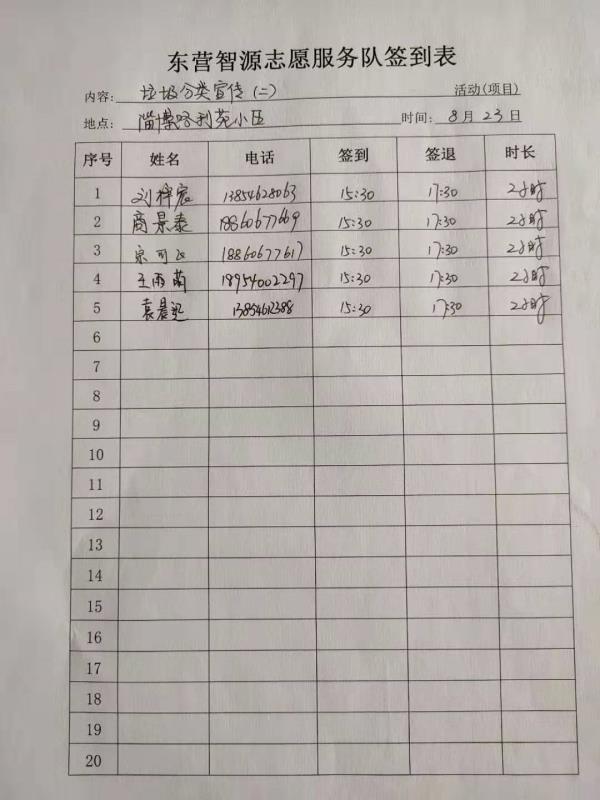 东营智源志愿服务队签到表
内容: 垃圾分类宣传(二) 活动(项目)
地点: 淄博路利苑小区 时间: 8月23日
序号 姓名 电话 签到 签退 时长
1 刘梓宸 13854628063 15:30 17:30 2小时
2 商景泰 18860677669 15:30 17:30 2小时
3 宗可 18860677617 15:30 17:30 2小时
4 王雨萌 18954002297 15:30 17:30 2小时
5 袁晨 13854612388 15:30 17:30 2小时
6
7
8
9
10
11
12
13
14
15
16
17
18
19
20